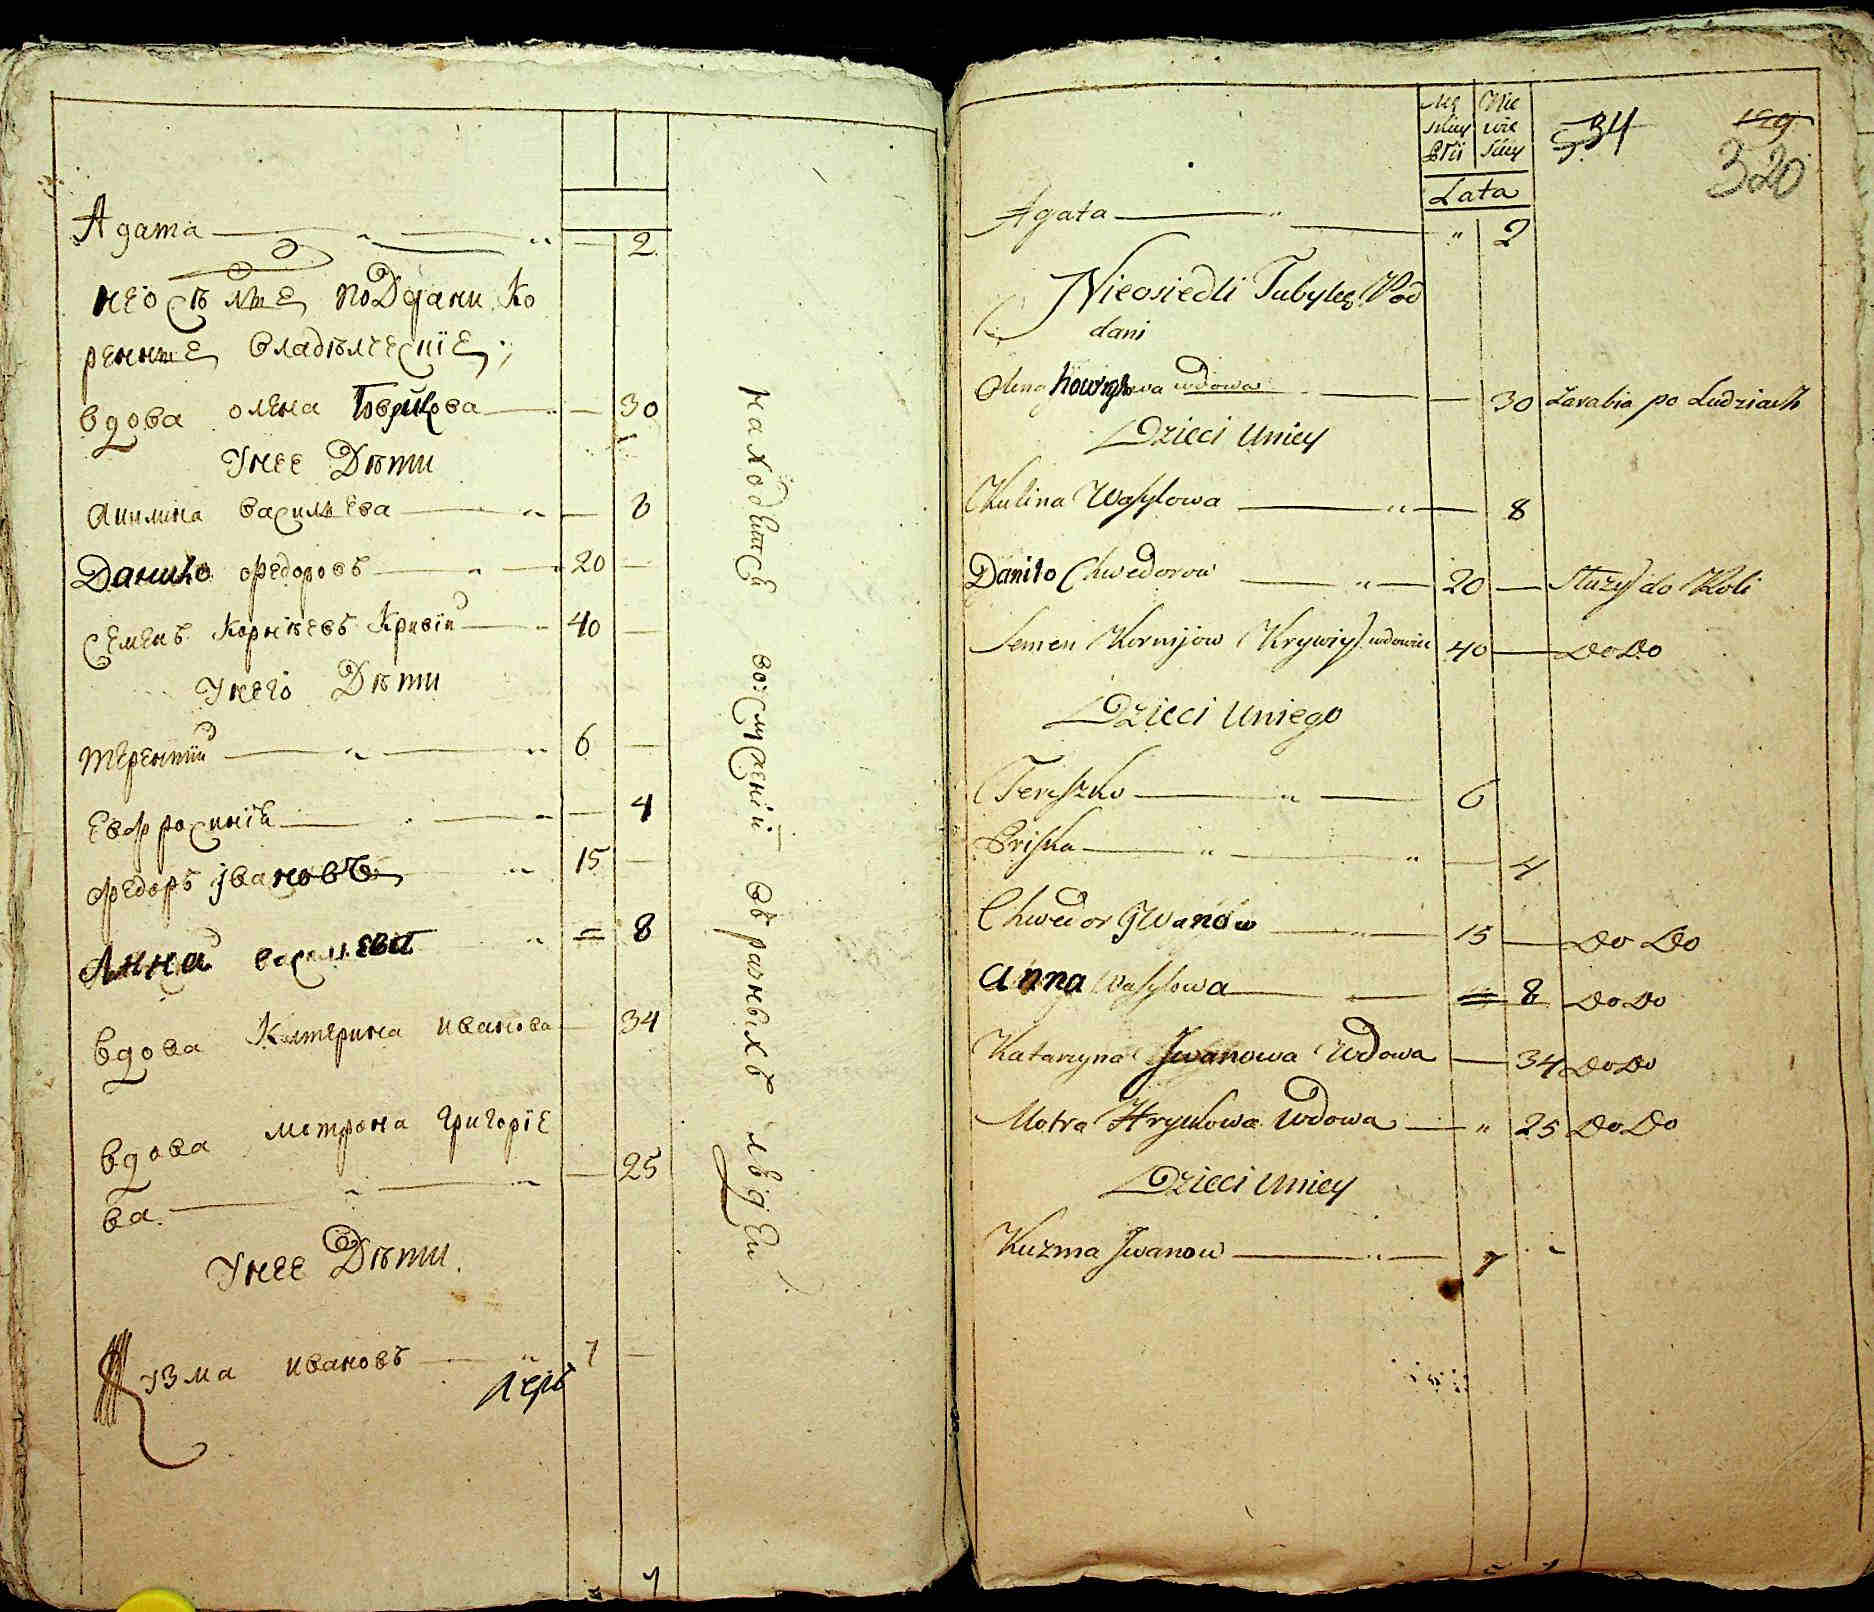 Агата 2
неоселые подданн. Ко
ренные владелческіе;
вдова олена 30
Унее Дѣти
Акилина васильева 8
Данило Федоровъ 20
Семенъ Корнѣевъ Кривiй 40
Унего Дѣти
терентiй 6
евфросинiя 4
Федоръ Iвановъ 15
Анна васильева 8
вдова Катерина иванова 34
вдова Мотрона григорiе
ва. 25
Унее Дѣти.
Кузма ивановъ 7
находетсе въ разныхъ людей
Męskiey Płci
Niewieściey
534
159
320
Lata
Agata 2
Nieosiedli Tubylcy Pod
dani
wdowa 30 Zarabia po Ludziach
Dzieci Uniey
Kulina Wasylowa 8
Daniło Chwedorow 20 Służy do Roli
Semen Kornijow Krywiy wdowiec 40 Do Do
Dzieci Uniego
Tereszko 6
Priska 4
Chwedor Iwanow 15 Do Do
Anna Wasylowa 8 Do Do
Katarzyna Iwanowa Wdowa 34 Do Do
Motra Hrynkowa Wdowa 25 Do Do
Dzieci Uniey
Kuzma Iwanow 7